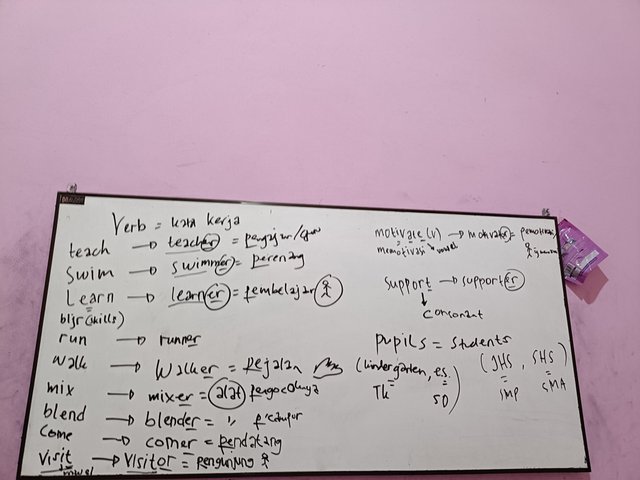 Verb = kata kerja
teach → teacher = pengajar/guru
swim → swimmer = perenang
Learn → learner = pembelajar
bljr (skills)
run → runner
walk → walker = pejalan
mix → mixer = alat
blend → blender = ,,
come → comer = pendatang
visit → visitor = pengunjung
motivate (v) → motivator =
memotivasi
support → supporter
consonant
pupils = students
(kindergarten, es.) (JHS, SHS)
TK SD SMP SMA